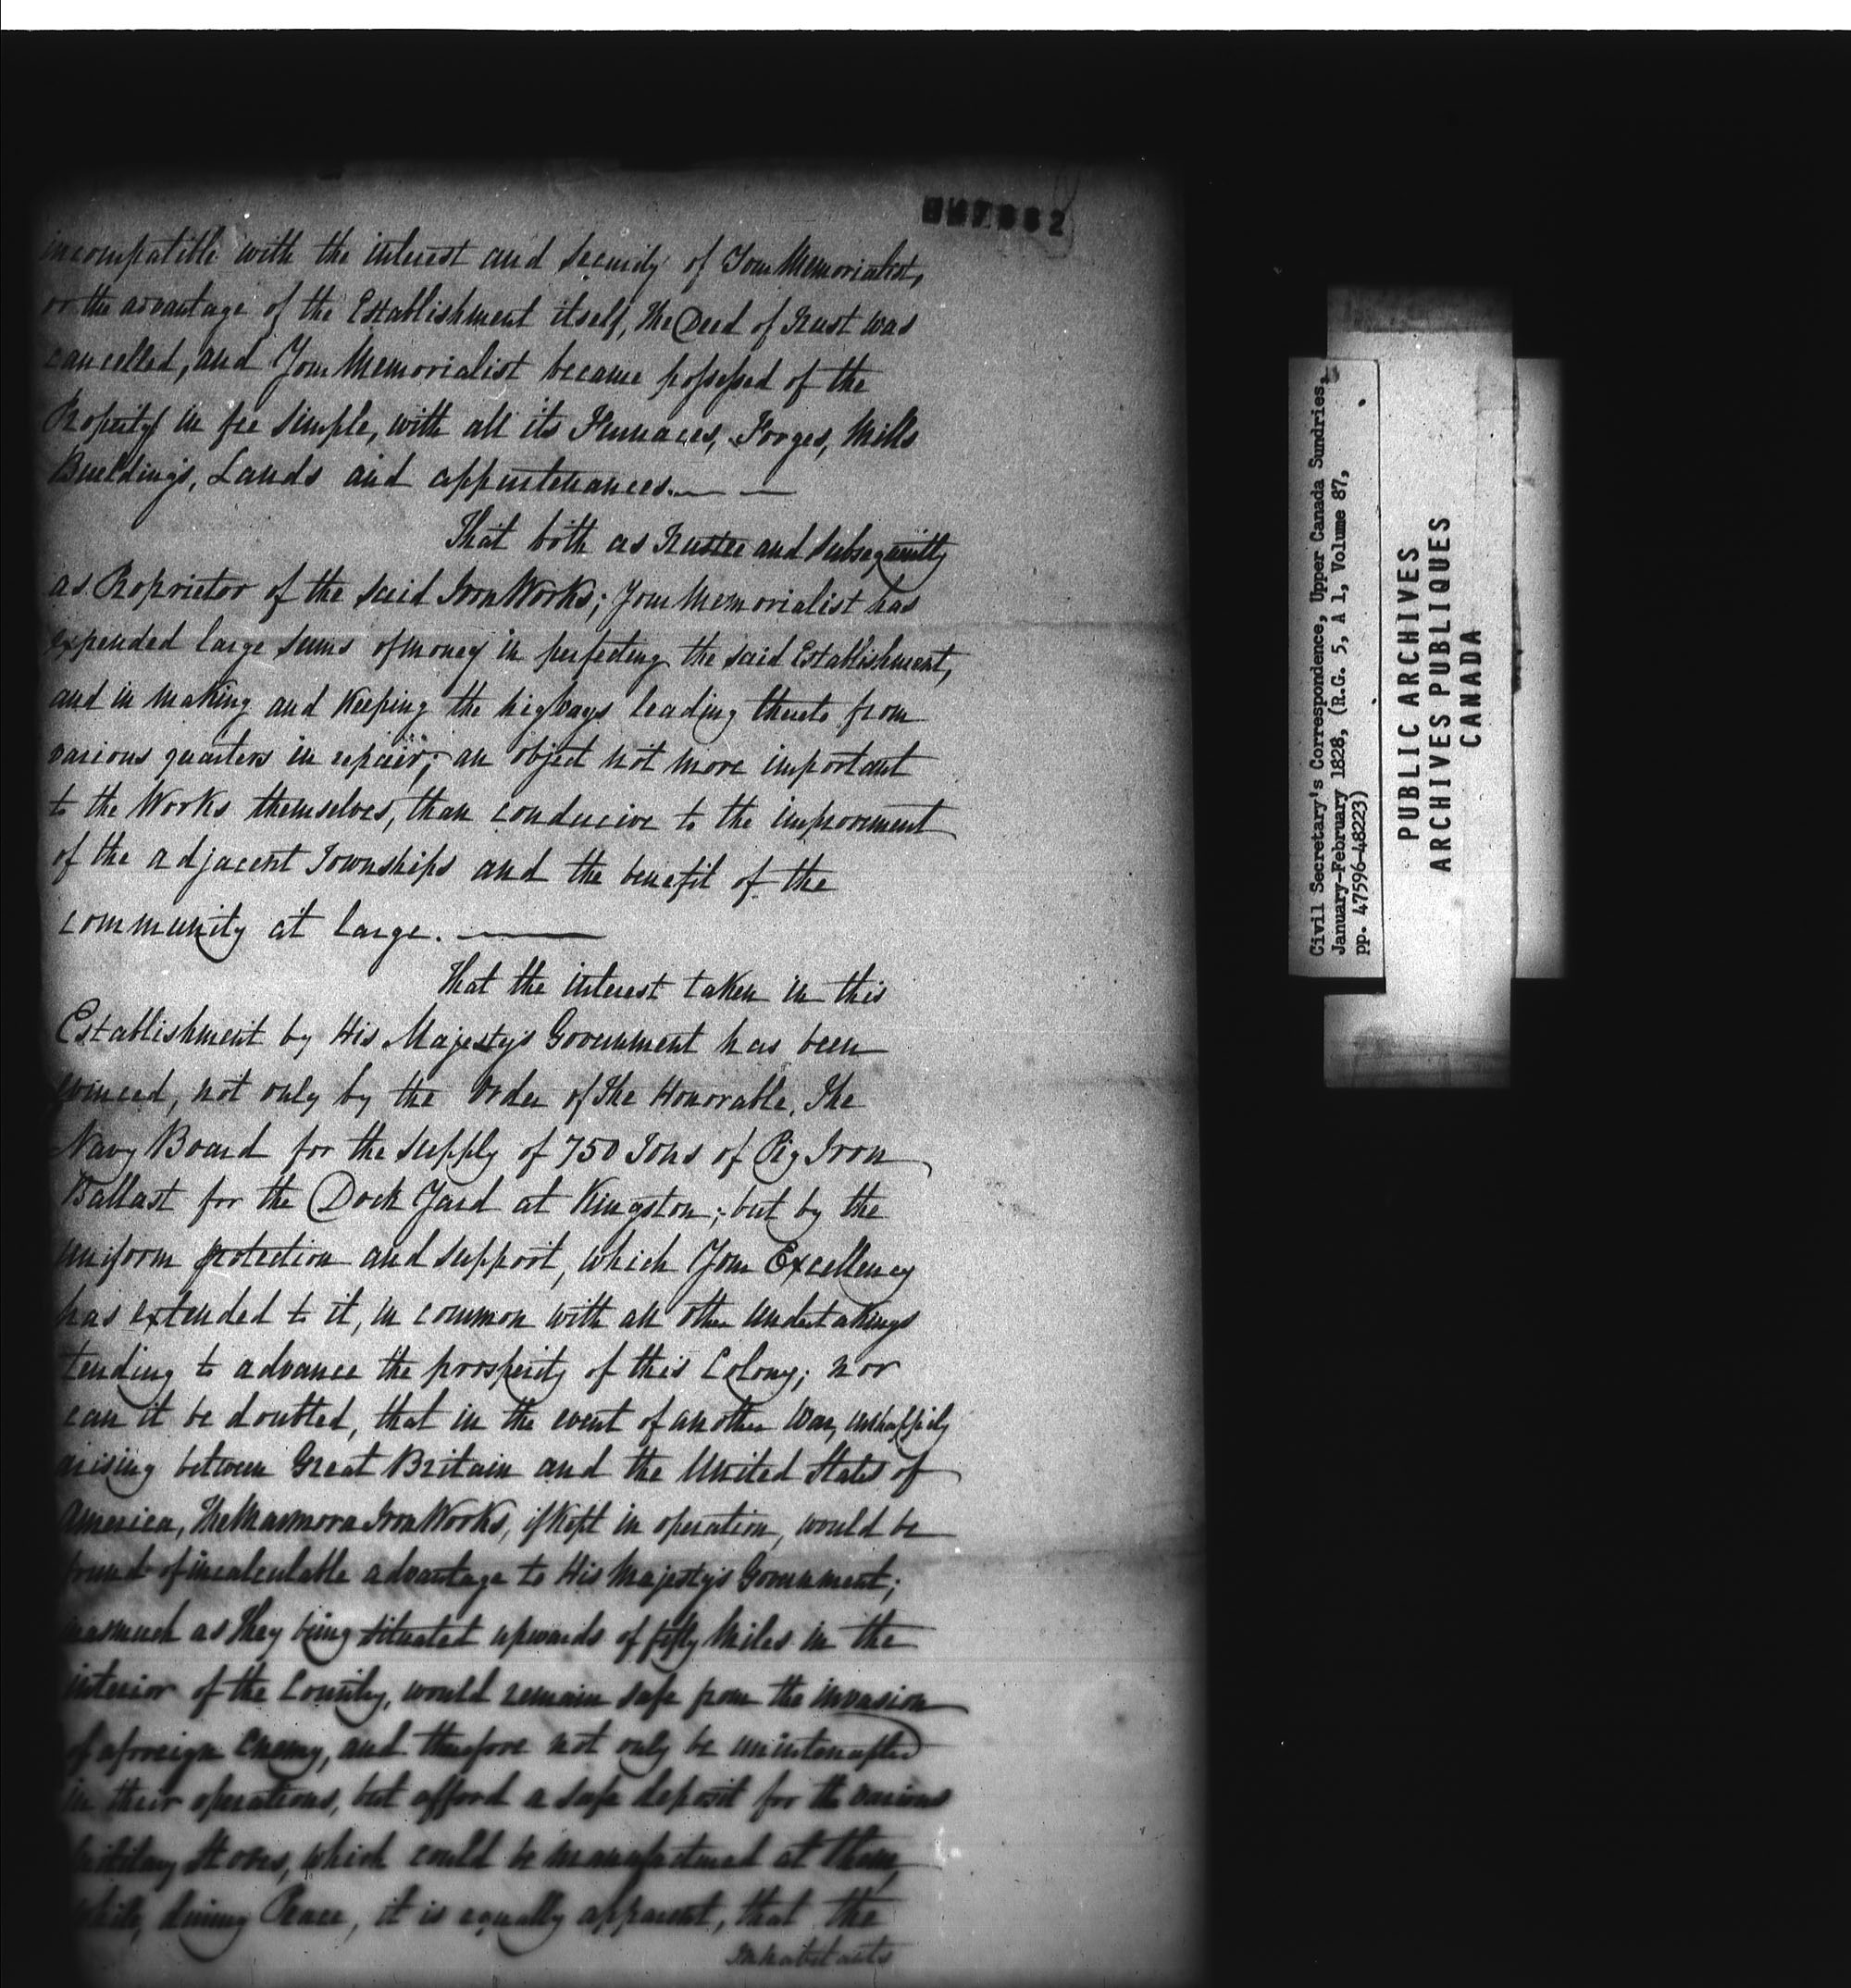 incompatible with the interest and security of Your Memorialist,
or the advantage of the Establishment itself, The Deed of Trust was
cancelled, and Your Memorialist became possessed of the
Property in fee simple, with all its Furnaces, Forges, Mills
Buildings, Lands and appurtenances. — —
That both as Trustee and subsequently
as Proprietor of the said Iron Works; Your Memorialist has
expended large sums of money in perfecting the said Establishment,
and in making and keeping the highways leading thereto from
various quarters in repair; an object not more important
to the Works themselves, than conducive to the improvement
of the adjacent Townships and the benefit of the
community at large. —
That the interest taken in this
Establishment by His Majesty's Government has been
evinced, not only by the Order of The Honorable, The
Navy Board for the supply of 750 Tons of Pig Iron
Ballast for the Dock Yard at Kingston; but by the
uniform protection and support, which Your Excellency
has extended to it, in common with all other undertakings
tending to advance the prosperity of this Colony; nor
can it be doubted, that in the event of another War, unhappily
arising between Great Britain and the United States of
America, The Marmora Iron Works, if kept in operation, would be
found of incalculable advantage to His Majesty's Government;
inasmuch as they being situated upwards of fifty Miles in the
interior of the Country, would remain safe from the invasion
of a foreign Enemy, and therefore not only be uninterrupted
in their operations, but afford a safe deposit for the various
Military Stores, which could be manufactured at them,
while, during Peace, it is equally apparent, that the
Inhabitants
Civil Secretary's Correspondence, Upper Canada Sundries,
January-February 1828, (R.G. 5, A 1, Volume 87,
pp. 47596-48223)
PUBLIC ARCHIVES
ARCHIVES PUBLIQUES
CANADA